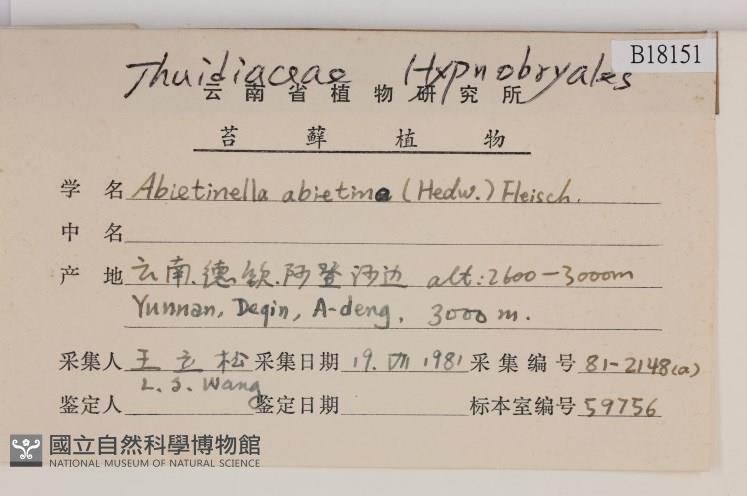 B18151
Thuidiaceae Hypnobryales
云南省植物研究所
苔藓植物
学名 Abietinella abietina (Hedw.) Fleisch.
中名
产地 云南.德钦.阿登沟边 alt: 2600-3000m
Yunnan, Deqin, A-deng, 3000 m.
采集人 王立松 采集日期 19. VII 1981 采集编号 81-2148(a)
L. S. Wang
鉴定人 鉴定日期 标本室编号 59756
國立自然科學博物館
NATIONAL MUSEUM OF NATURAL SCIENCE